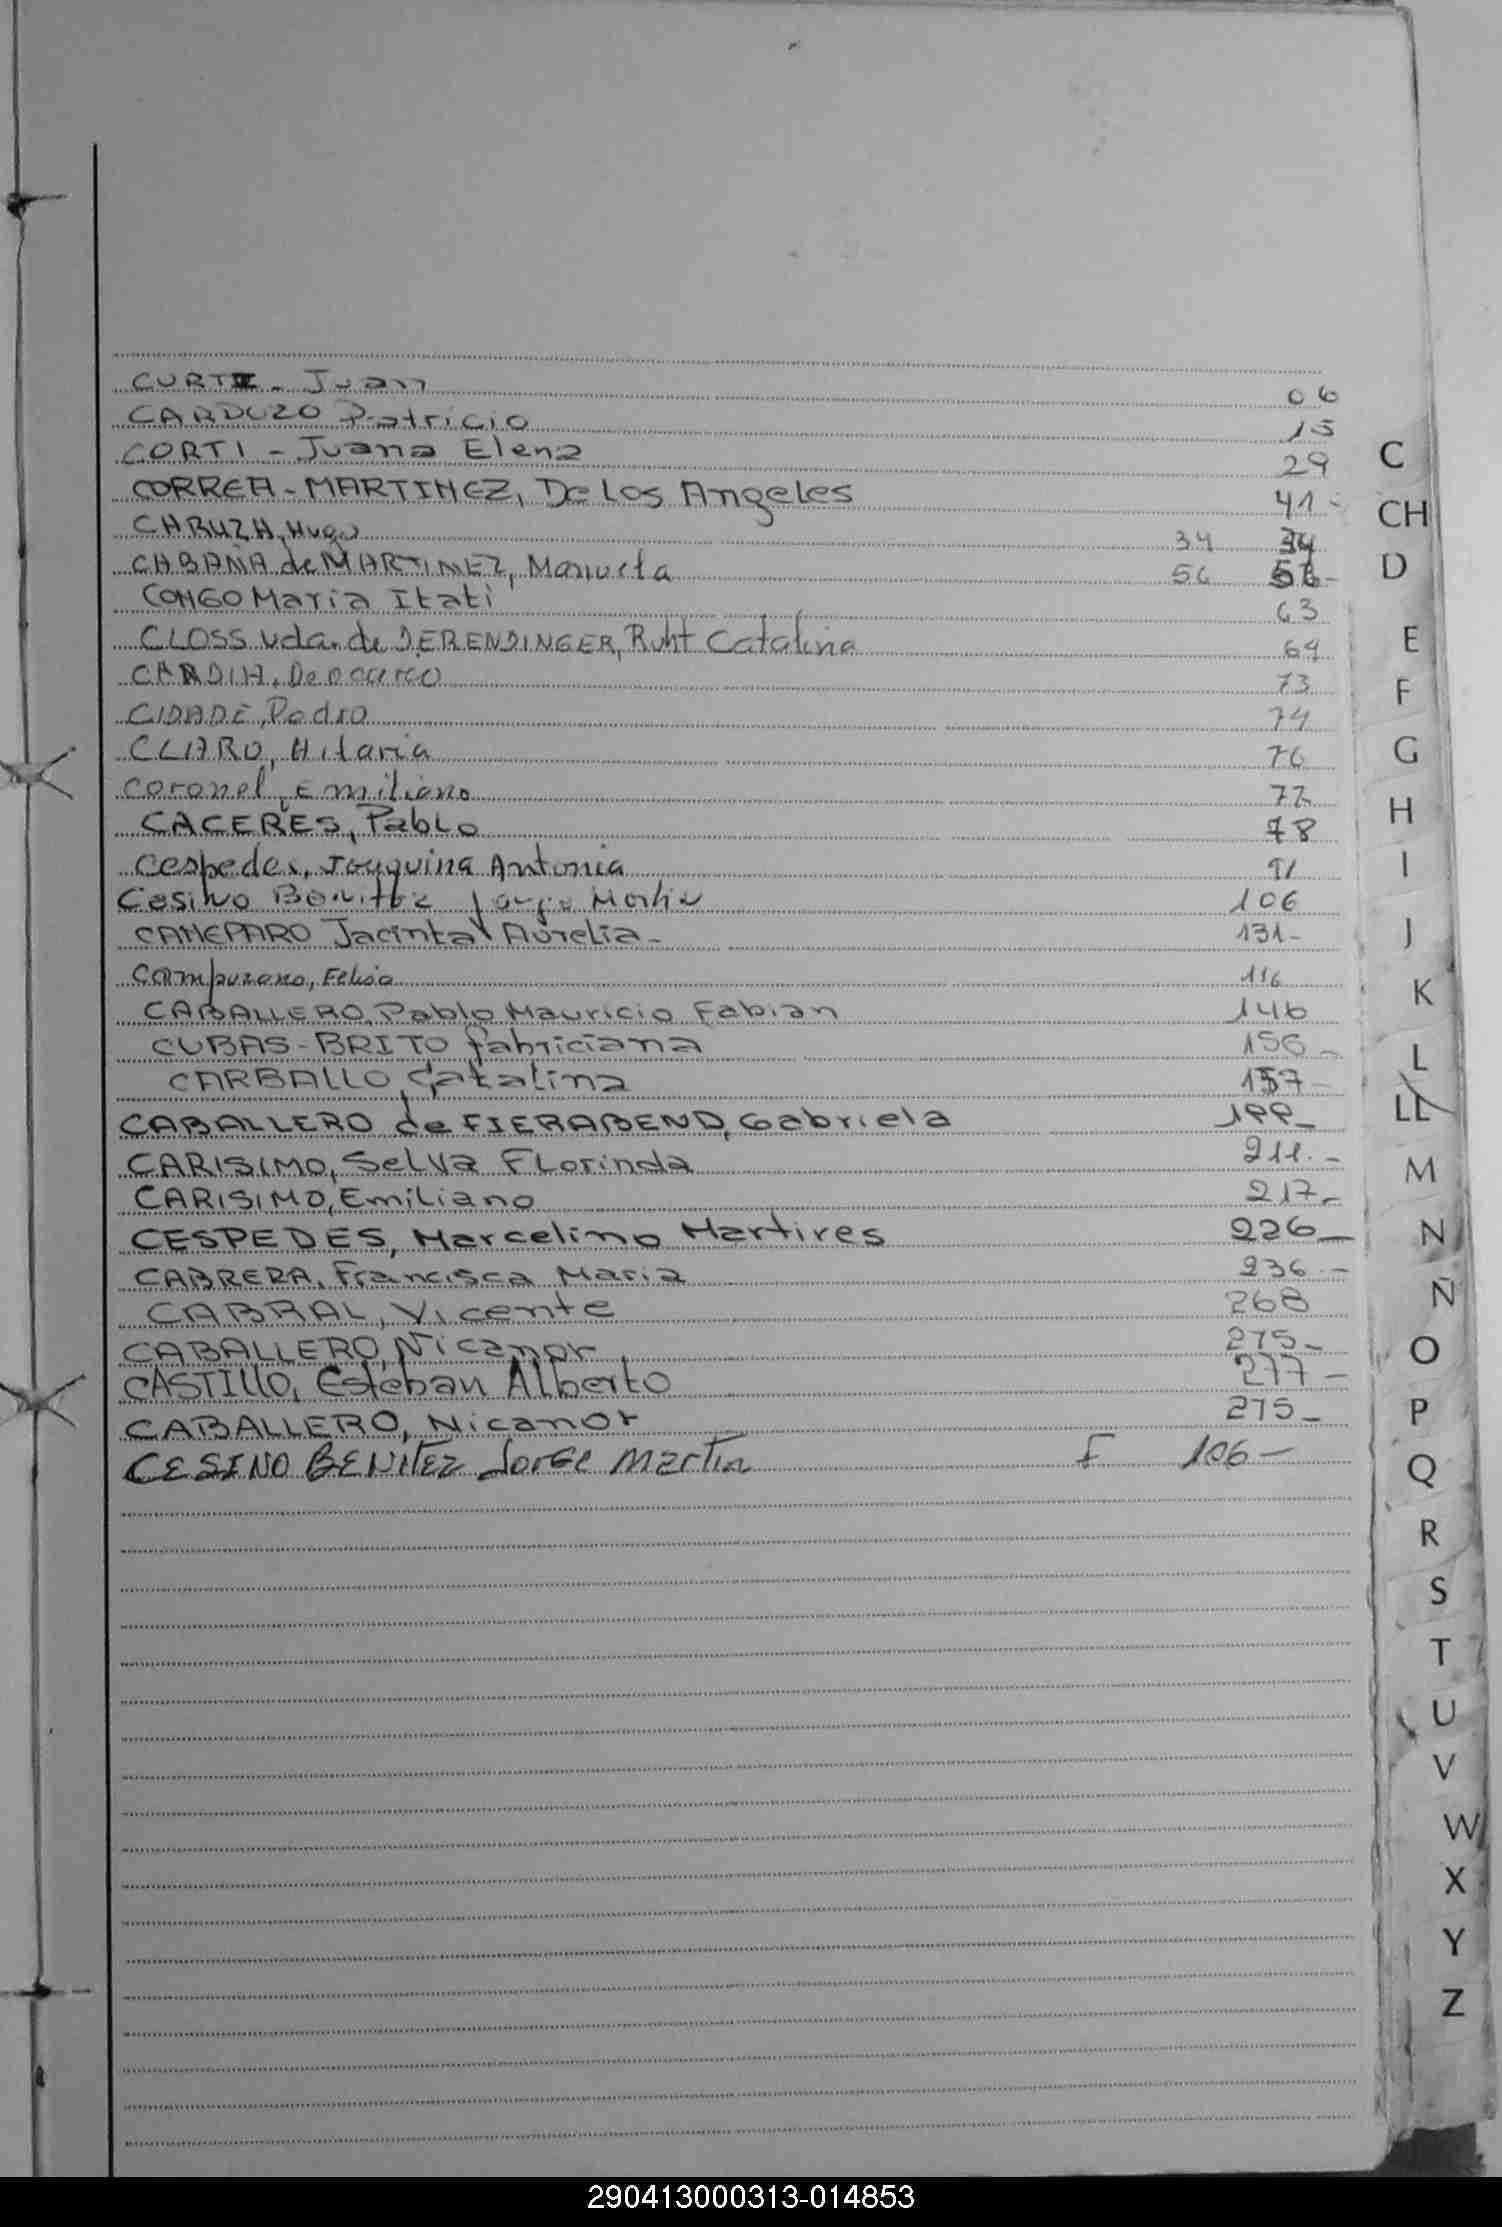 CURTI - Juan 06
CARDUZO Patricio 15
CORTI - Juana Elena 29
CORREA - MARTINEZ, De Los Angeles 41-
Hugo 34 34
CABAÑA de MARTINEZ, Manuela 56 56-
CONGO Maria Itati 63
CLOSS vda. de DERENDINGER, Ruht Catalina 69
73
CIDADE, Pedro 74
CLARO, Hilaria 76
Coronel, Emiliano 77
CACERES, Pablo 78
Cespedes, Antonia 91
Cesino 106
Jacinta Aurelia - 131-
Campuzano, 116
CABALLERO, Pablo Mauricio Fabian 146
CUBAS - BRITO fabriciana 156 -
CARBALLO, Catalina 157 -
CABALLERO de FIERABEND, Gabriela 199-
CARISIMO, Selva Florinda 211.-
CARISIMO, Emiliano 217-
CESPEDES, Marcelino Martires 226-
CABRERA, Francisca Maria 236 -
CABRAL, Vicente 268
CABALLERO, Nicanor 275-
CASTILLO, Esteban Alberto 277 -
CABALLERO, Nicanor 275-
CESINO BENITEZ Jorge Martin F 106-
C
CH
D
E
F
G
H
I
J
K
L
LL
M
N
Ñ
O
P
Q
R
S
T
U
V
W
X
Y
Z
290413000313-014853